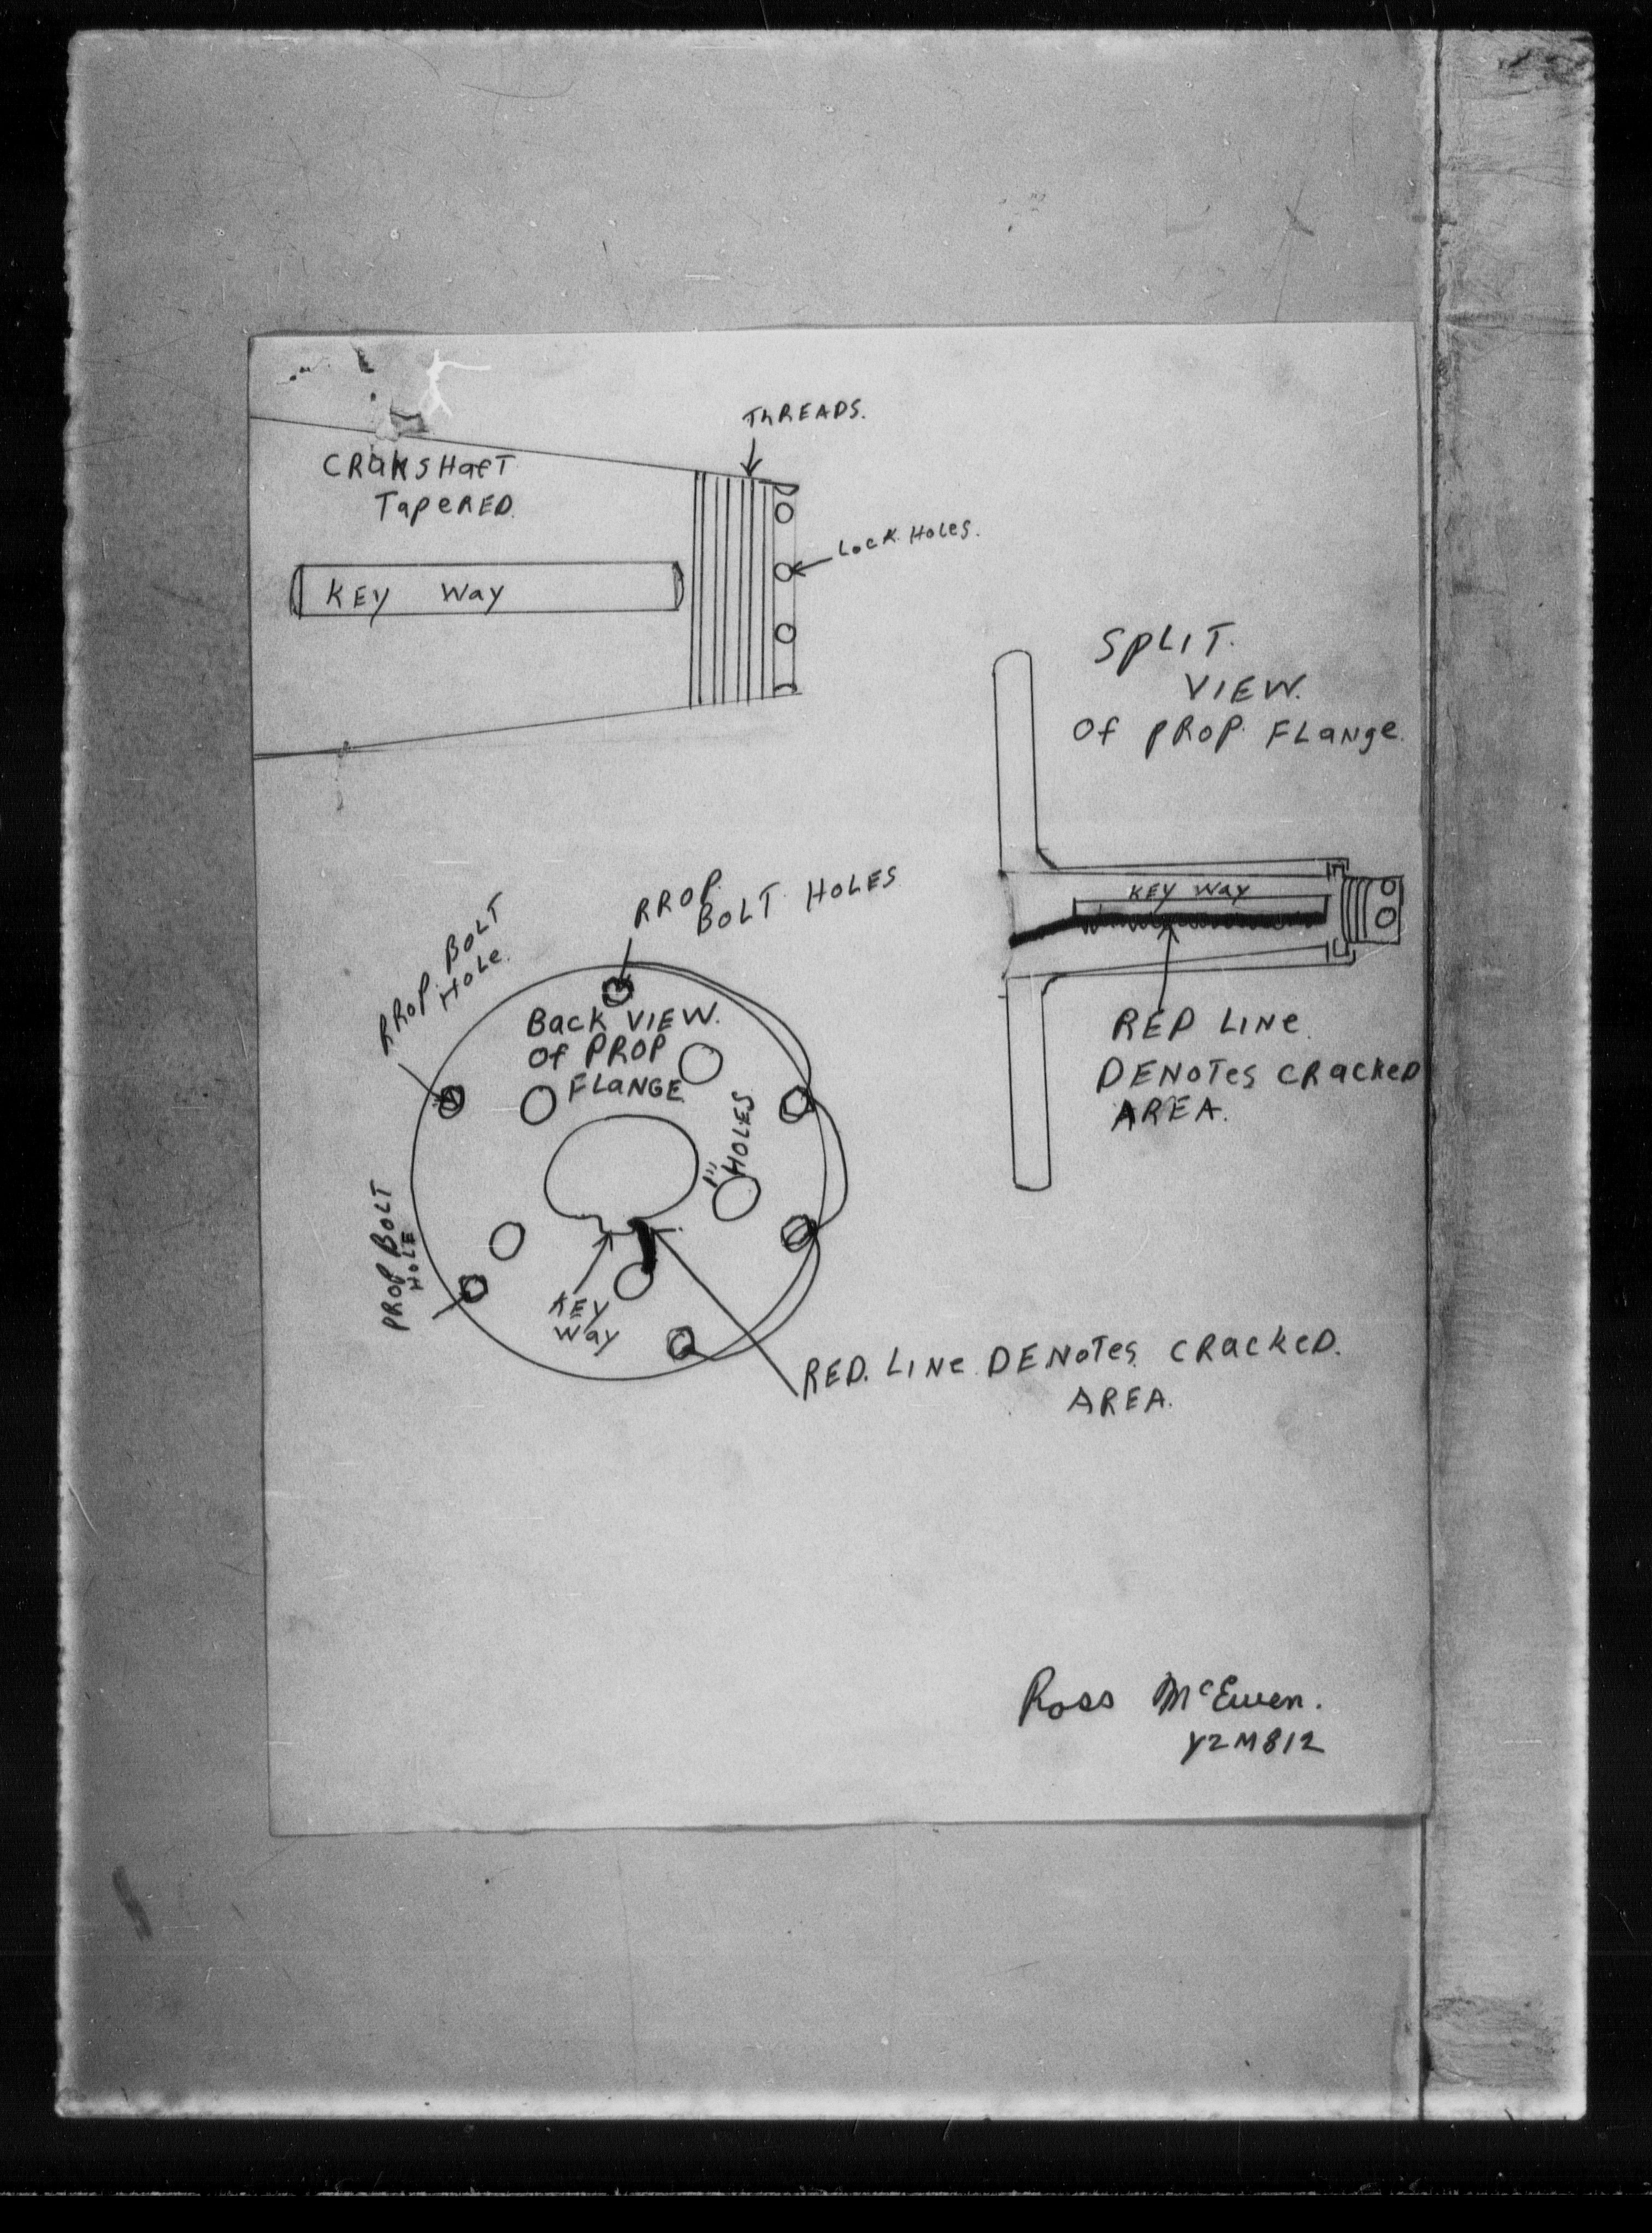 THREADS.
CRAKSHafT
TapeRED.
LOCK HOLES.
KEY Way
SPLIT.
VIEW.
Of PROP. FLange.
KEY Way
PROP.
BOLT HOLES
PROP. BOLT
HOLe.
Back VIEW.
Of PROP
FLANGE.
RED LINe
DENOTes CRacKeD
AREA.
1" HOLES
PROP BOLT
HOLE
KEY
Way
RED. LINe DENOTes CRacKeD.
AREA.
Ross McEwen.
Y2M812